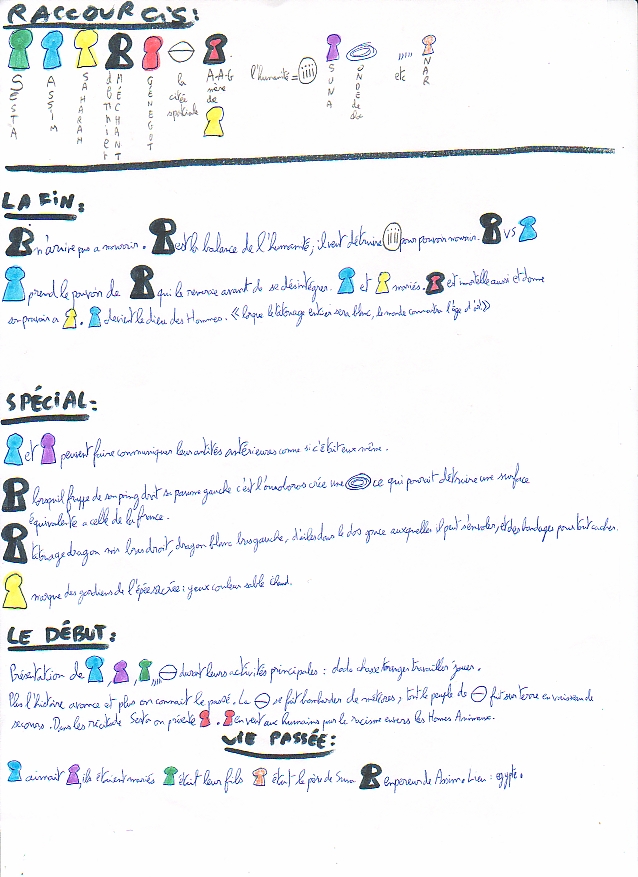 RACCOURCIS:
SESTA
ASSIM
SAHARAH
dernier
MÉCHANT
GENEGOT
la cité spatiale
A.A.G mère de
l'humanité =
SUNA
ONDE de choc
etc
NAR
LA FIN:
n'arrive pas a mourir. est la balance de l'humanité; il veut détruire pour pouvoir mourir. VS
prend le pouvoir de qui le remercie avant de se désintégrer. et mariés. est immortelle aussi et donne
son pouvoir a . devient le dieu des Hommes. «lorsque le tatouage entier sera blanc, le monde connaîtra l'âge d'or»
SPÉCIAL:
et peuvent faire communiquer leurs entités antérieures comme si c'était eux même.
lorsqu'il frappe de son poing droit sa paume gauche c'est l'ouroboros crée une ce qui pourrait détruire une surface
équivalente a celle de la france.
tatouage dragon noir bras droit, dragon blanc bras gauche, d'ailes dans le dos grace auxquelles il peut s'envoler, et des bandages pour tout cacher.
marque des gardiens de l'épée sacrée: yeux couleur sable chaud.
LE DÉBUT:
Présentation de , , , durant leurs activités principales: dodo chasse manger travailler jouer.
Plus l'histoire avance et plus on connait le passé. La se fait bombarder de météores, tout le peuple de fuit sur terre en vaisseau de
secours. Dans les Sesta on . en veut aux humains par le racisme envers les Homes Animaux.
VIE PASSÉE:
aimait , ils étaient mariés était leur fils était le père de Suna empereur de Assim. Lieu: egypte.